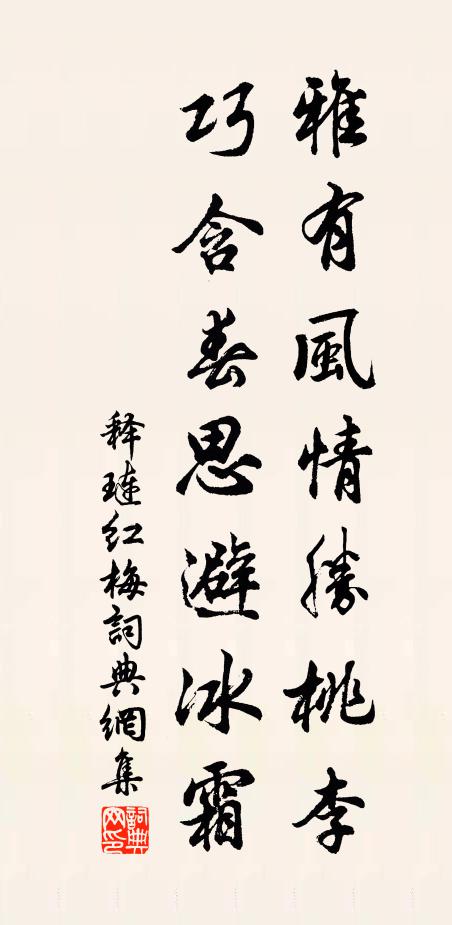 雅有風情勝桃李
巧含春思避冰霜
释琏红梅詞典網集
詞典网印